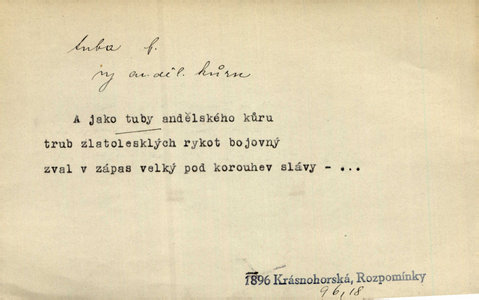 tuba f.
ry anděl. kůru
A jako tuby andělského kůru
trub zlatolesklých rykot bojovný
zval v zápas velký pod korouhev slávy - ...
1896 Krásnohorská, Rozpomínky
96,18